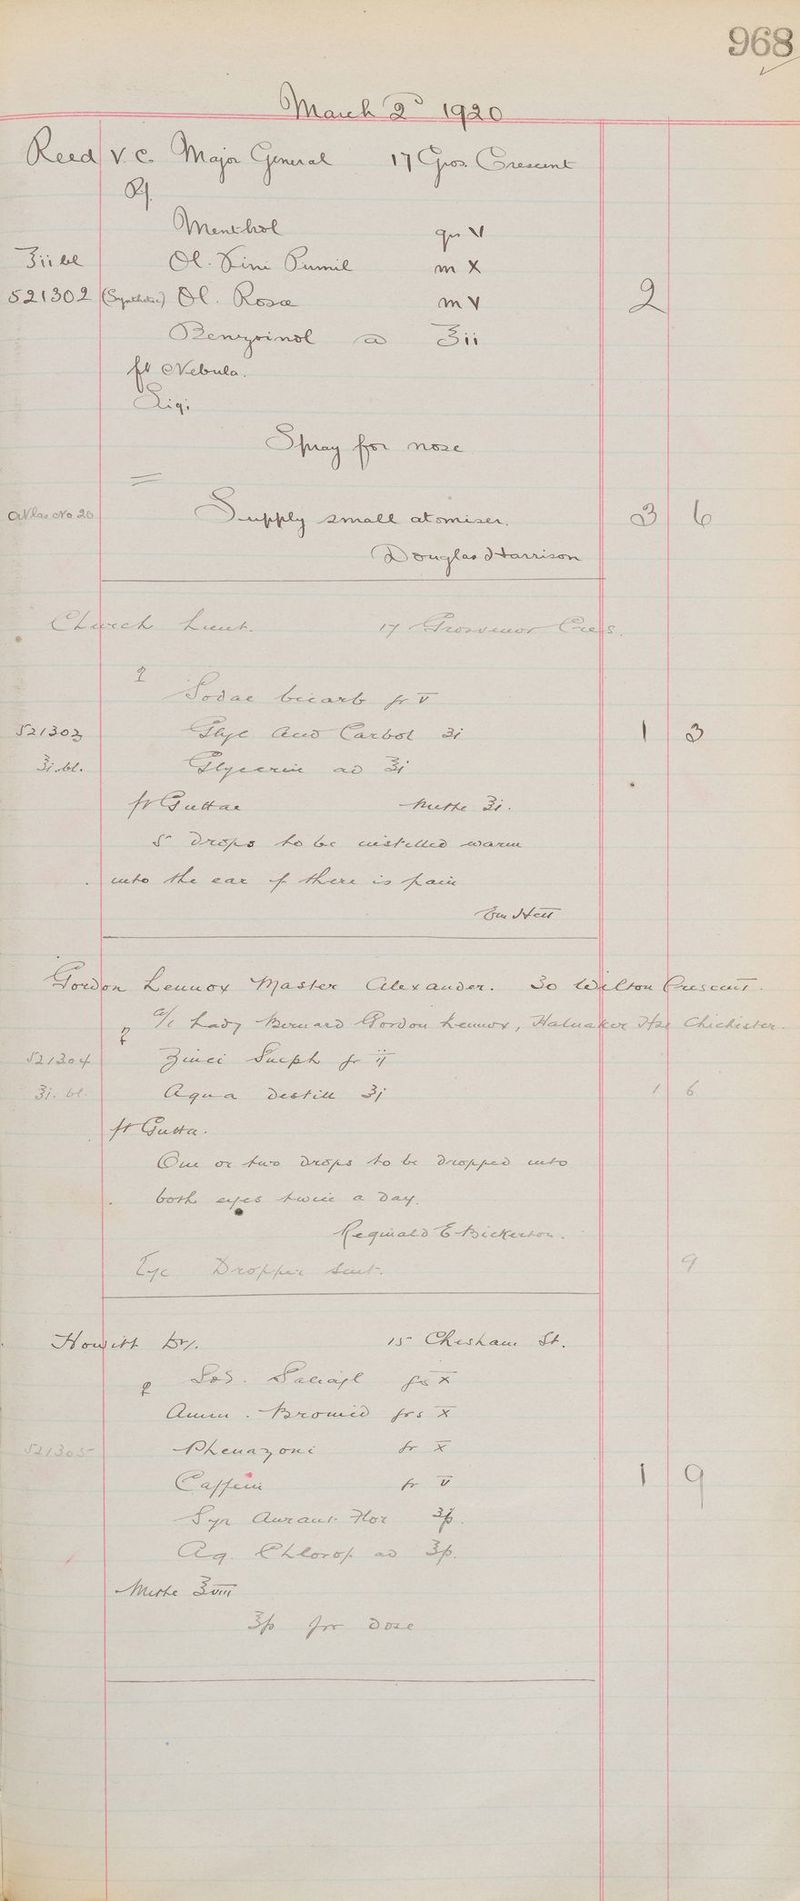 968
March 2d 1920
Reed V.C. Major General 17 Gros. Crescent
Rx.
Menthol gr V
℥ii bl Ol. Pini Pumil m X
521302 (Synthetic) Ol. Rosae m V 2
Benzoinol ad ℥ii
ft Nebula.
Sig;
Spray for nose
=
Atlas No 20 Supply small atomiser. 3 6
Douglas Harrison
Church Lieut. 17 Grosvenor Cres.
Rx
Sodae bicarb gr V
521303 Glyc Acid Carbol ʒi 1 3
℥i. bl. Glycerin ad ℥i
ft Guttae Mitte ℥i.
5 drops to be instilled warm
into the ear if there is pain
Hett
Gordon Lennox Master Alexander. 30 Wilton Crescent.
a/c Lady Bernard Gordon Lennox, Halnaker Hse Chichester.
Rx
521304 Zinci Sulph gr ii
℥i. bl. Aqua Destill ℥i 1 6
ft Gutta.
One or two drops to be dropped into
both eyes twice a day.
Reginald E Bickerton.
Eye Dropper sent. 9
Howitt Dr. 15 Chesham St.
Rx Sod. Salicyl grs X
Amm. Bromid grs X
521305 Phenazoni gr X
Caffein gr V 1 9
Syr Aurant Flor ʒſs.
Aq. Chlorof. ad ℥ſs.
Mitte ℥viii
℥ſs for dose